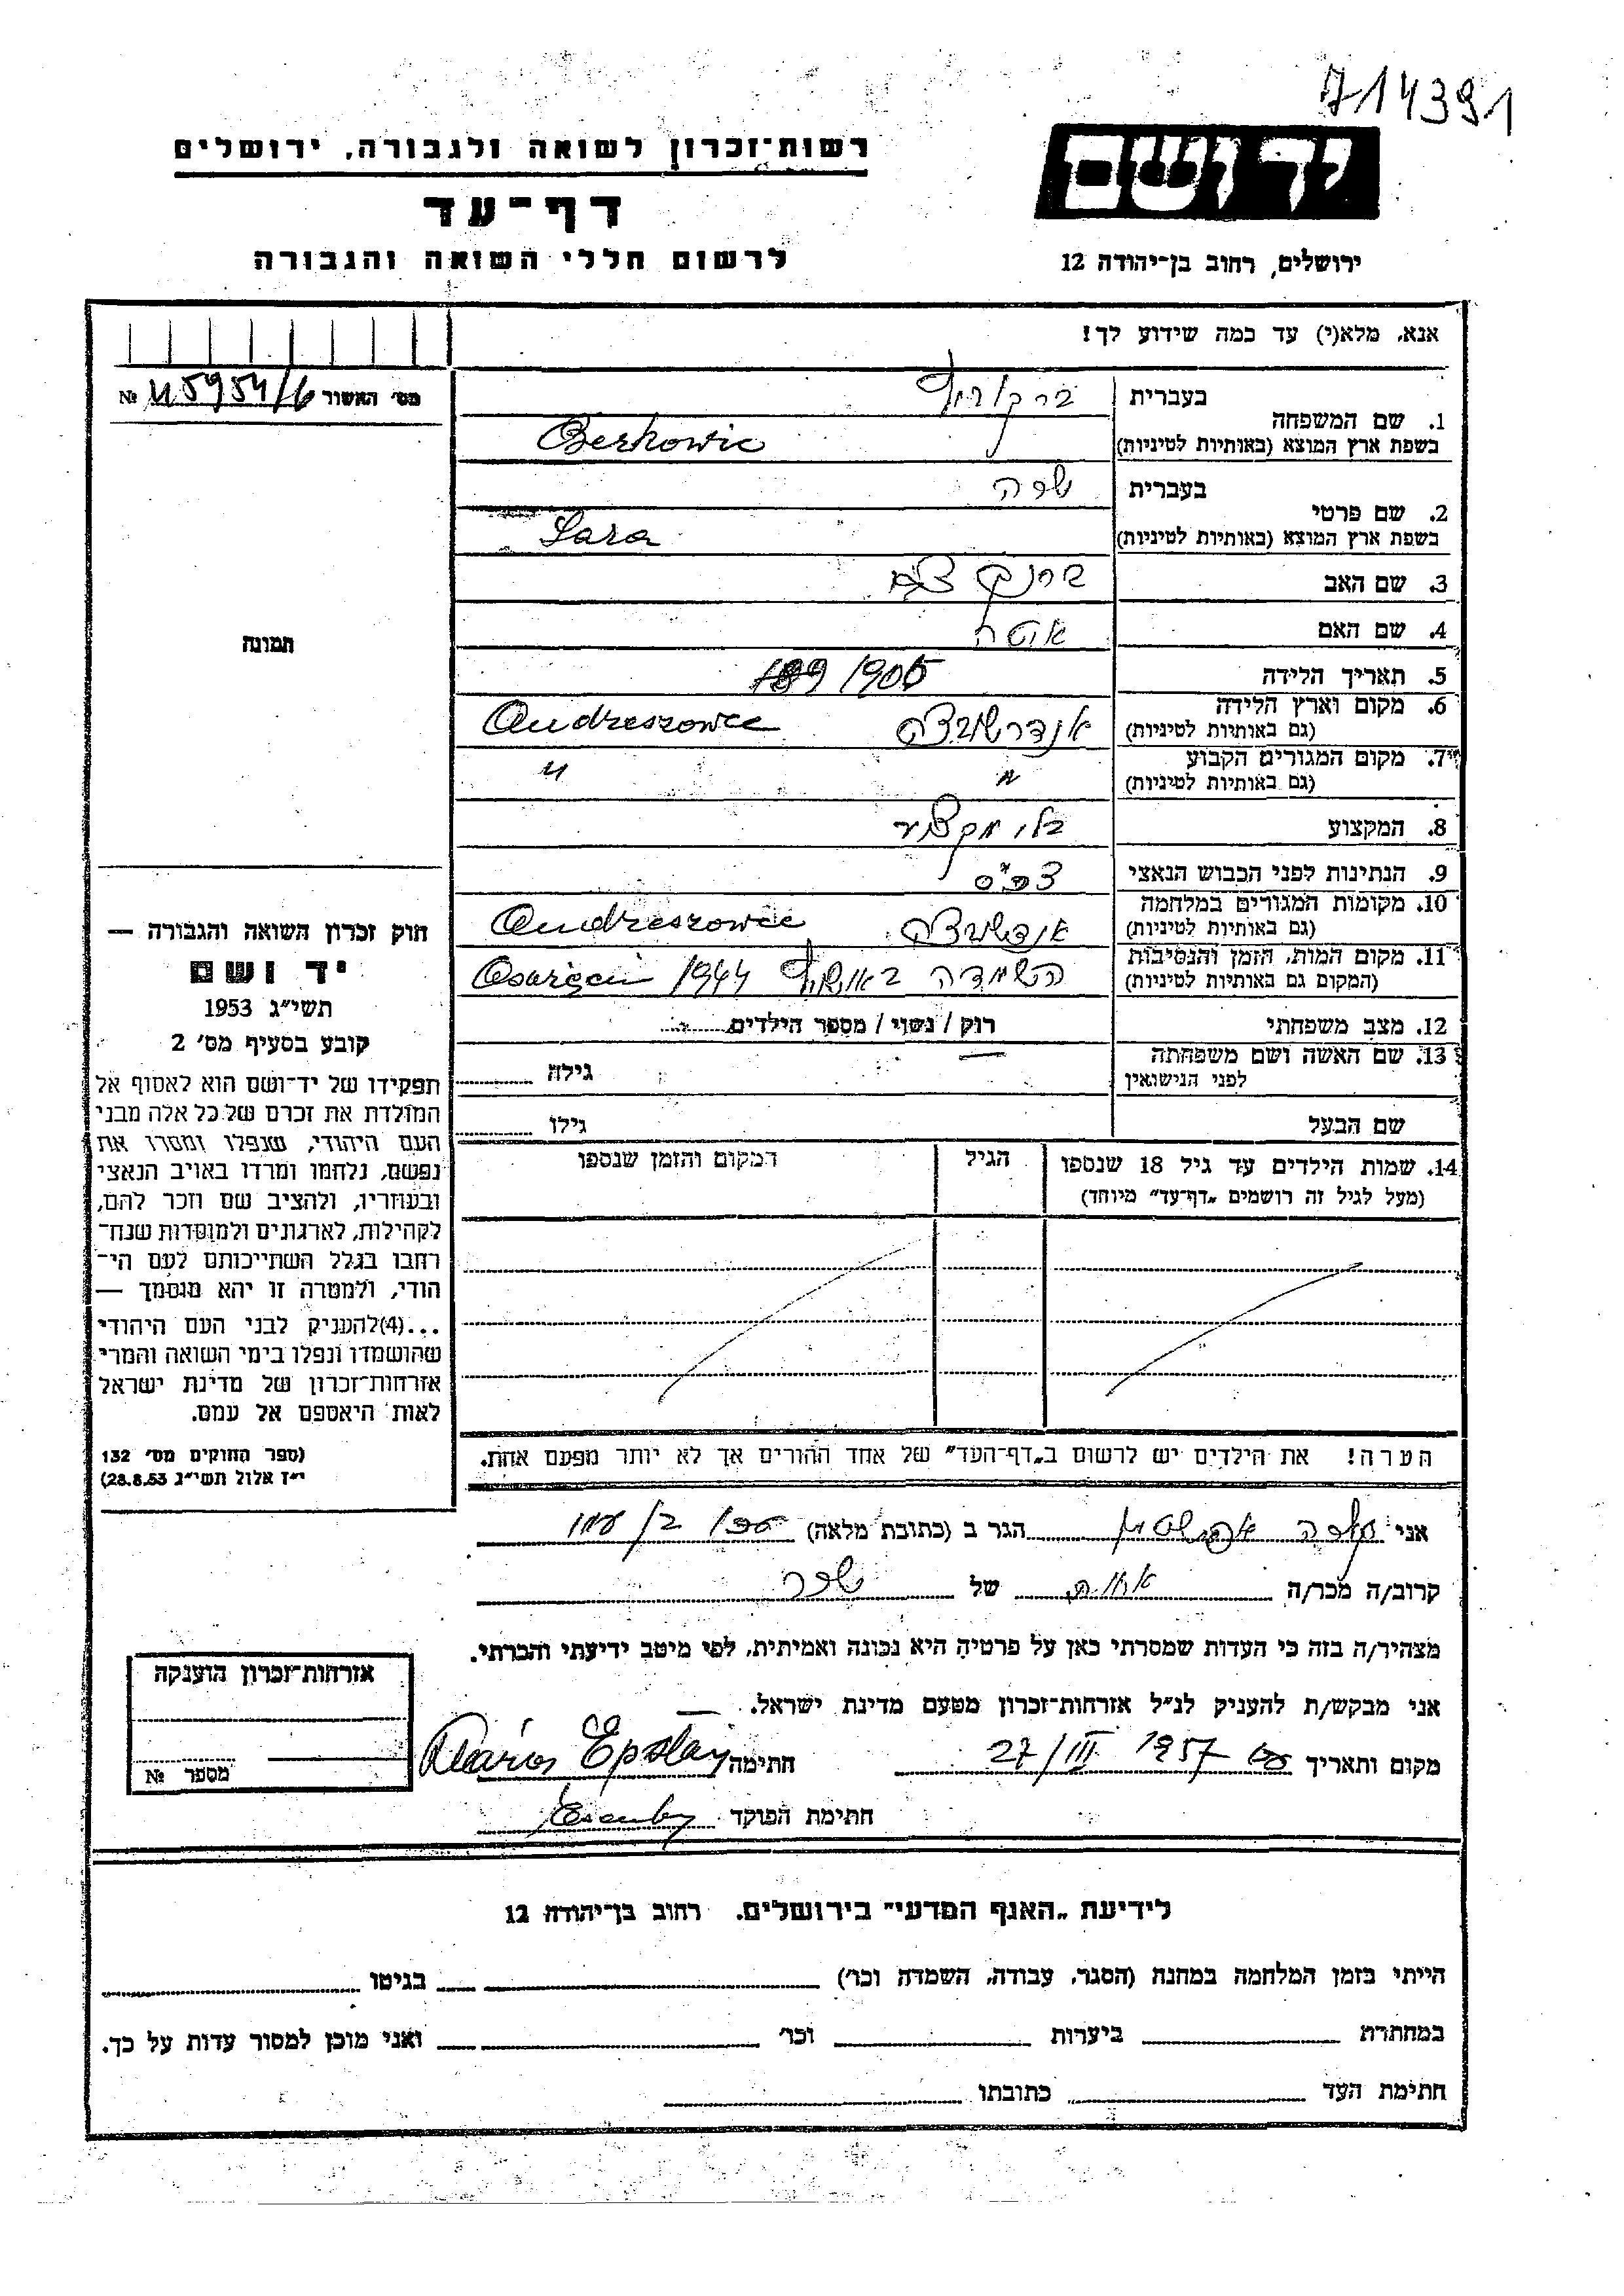 714391
רשות־זכרון לשואה ולגבורה, ירושלים
יד ושם
דף־עד
לרשום חללי השואה והגבורה
ירושלים, רחוב בן־יהודה 12
אנא, מלא(י) עד כמה שידוע לך!
מס' האשור №
1. שם המשפחה
בעברית
ברקוביץ
בשפת ארץ המוצא (באותיות לטיניות)
Berkowic
2. שם פרטי
בעברית
שרה
בשפת ארץ המוצא (באותיות לטיניות)
Sara
3. שם האב
4. שם האם
5. תאריך הלידה 1905
6. מקום וארץ הלידה
(גם באותיות לטיניות)
אנדרשובצה Andreszowce
7. מקום המגורים הקבוע
(גם באותיות לטיניות)
" "
8. המקצוע בלי מקצוע
9. הנתינות לפני הכבוש הנאצי
10. מקומות המגורים במלחמה
(גם באותיות לטיניות)
Andreszowce
11. מקום המות, הזמן והנסיבות
(המקום גם באותיות לטיניות)
השמדה 1944
12. מצב משפחתי רוק / נשוי / מספר הילדים
13. שם האשה ושם משפחתה
לפני הנישואין
גילה
שם הבעל גילו
14. שמות הילדים עד גיל 18 שנספו
(מעל לגיל זה רושמים „דף־עד” מיוחד)
הגיל
המקום והזמן שנספו
הערה! את הילדים יש לרשום ב„דף־העד” של אחד ההורים אך לא יותר מפעם אחת.
תמונה
חוק זכרון השואה והגבורה —
יד ושם
תשי״ג 1953
קובע בסעיף מס' 2
תפקידו של יד־ושם הוא לאסוף אל
המולדת את זכרם של כל אלה מבני
העם היהודי, שנפלו ומסרו את
נפשם, נלחמו ומרדו באויב הנאצי
ובעוזריו, ולהציב שם וזכר להם,
לקהילות, לארגונים ולמוסדות שנח־
רבו בגלל השתייכותם לעם הי־
הודי, ולמטרה זו יהא מוסמך —
...(4)להעניק לבני העם היהודי
שהושמדו ונפלו בימי השואה והמרי
אזרחות־זכרון של מדינת ישראל
לאות היאספם אל עמם.
(ספר החוקים מס' 132
י״ז אלול תשי״ג 28.8.53)
אני הגר ב (כתובת מלאה)
קרוב/ה מכר/ה אחות של שרה
מצהיר/ה בזה כי העדות שמסרתי כאן על פרטיה היא נכונה ואמיתית, לפי מיטב ידיעתי והכרתי.
אני מבקש/ת להעניק לנ״ל אזרחות־זכרון מטעם מדינת ישראל.
מקום ותאריך 27/III 1957 חתימה
חתימת הפוקד
אזרחות־זכרון הוענקה
מספר №
לידיעת „האגף המדעי” בירושלים. רחוב בן־יהודה 12
הייתי בזמן המלחמה במחנה (הסגר, עבודה, השמדה וכו') בגיטו
במחתרת ביערות וכו' ואני מוכן למסור עדות על כך.
חתימת העד כתובתו